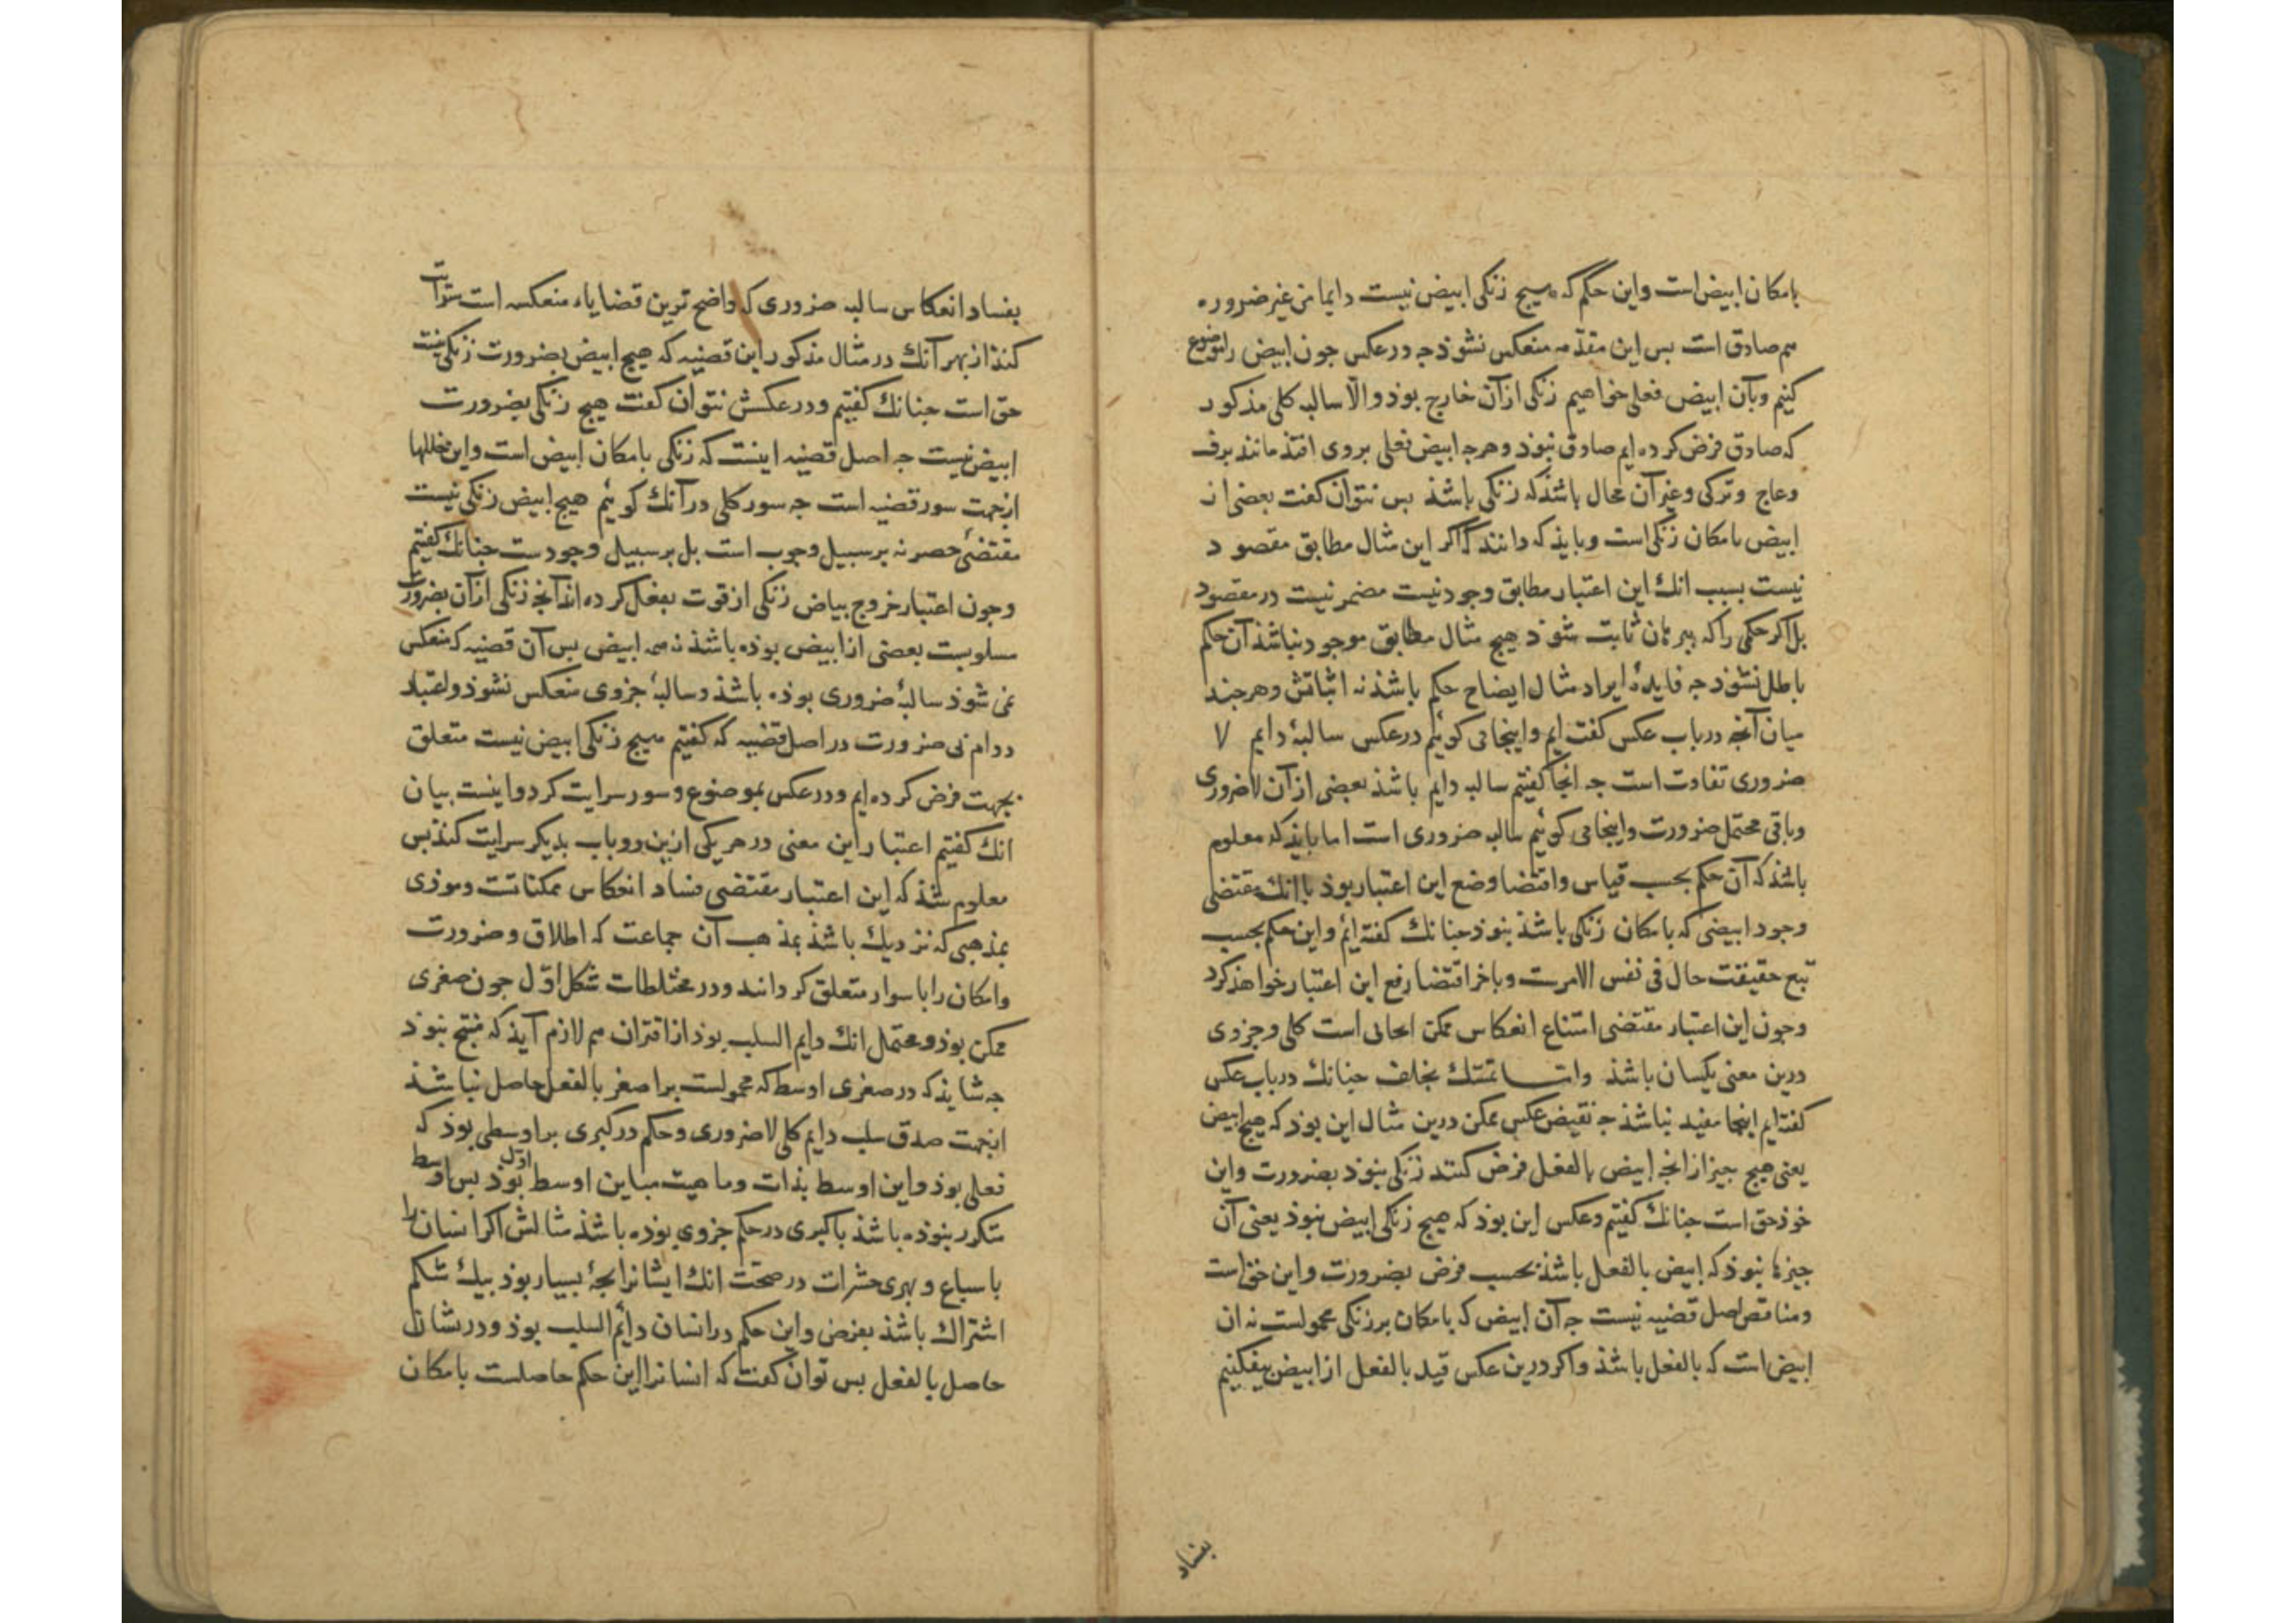 بامکان ابیض است واین حکم که هیچ زنکی ابیض نیست دایما من غیر ضروره
هم صادق است بس این مقدمه منعکس نشوذ جه درعکس جون ابیض را موضوع
کنیم وبآن ابیض فعلی خواهیم زنکی ازآن خارج بوذ والّا سالبه کلی مذکور
که صادق فرض کرده ایم صادق نبوذ وهرجه ابیض فعلی بروی افتذ مانند برف
وعاج وترکی وغیر آن محال باشذکه زنکی باشذ بس نتوان کفت بعضی از
ابیض بامکان زنکی است وبایذ که دانند که اکر این مثال مطابق مقصود
نیست بسبب انك این اعتبار مطابق وجود نیست مضر نیست در مقصود
بل اکر حکمی را که ببرهان ثابت شوذ هیج مثال مطابق موجود نباشذ آن حکم
باطل نشوذ جه فایدهٔ ایراد مثال ایضاح حکم باشذ نه اثباتش وهرجند
میان آنجه درباب عکس کفته ایم واینجا می کوئیم درعکس سالبهٔ دایم لا
ضروری تفاوت است جه انجا کفتیم سالبه دایم باشذ بعضی ازآن لاضروری
وباقی محتمل ضرورت واینجا می کوئیم سالبه ضروری است اما بایذ که معلوم
باشذ که آن حکم بحسب قیاس واقتضا وضع این اعتبار بوذ باانك مقتضی
وجود ابیضی که بامکان زنکی باشذ نبوذ جنانك کفته ایم واین حکم بحسب
تبع حقیقت حال فی نفس الامرست وباخر اقتضا رفع این اعتبار خواهذ کرد
وجون این اعتبار مقتضی امتناع انعکاس ممکن ایجابی است کلی وجزوی
درین معنی یکسان باشذ واما تمسّك بخلف جنانك درباب عکس
کفته ایم اینجا مفید نباشذ جه نقیض عکس ممکن درین مثال این بوذ که هیج ابیض
یعنی هیج جیز ازانجه ابیض بالفعل فرض کنند زنکی نبوذ بضرورت واین
خوذ حق است جنانك کفتیم وعکس این بوذ که هیج زنکی ابیض نبوذ یعنی آن
جیزها نبوذ که ابیض بالفعل باشذ بحسب فرض بضرورت واین حق است
ومناقض اصل قضیه نیست جه آن ابیض که بامکان برزنکی محمولست نه ان
ابیض است که بالفعل باشذ واکر درین عکس قید بالفعل از ابیض بیفکنیم
بفساد
بفساد انعکاس سالبه ضروری که واضح ترین قضایاء منعکسه است سرایت
کنذ از بهر آنك در مثال مذکور این قضیه که هیج ابیض بضرورت زنکی نیست
حق است جنانك کفتیم ودرعکسش نتوان کفت هیج زنکی بضرورت
ابیض نیست جه اصل قضیه اینست که زنکی بامکان ابیض است واین خللها
ازجهت سور قضیه است جه سور کلی درآنك کوئیم هیج ابیض زنکی نیست
مقتضئ حصر نه برسبیل وجوب است بل برسبیل وجودست جنانك کفتیم
وجون اعتبار خروج بیاض زنکی ازقوت بفعل کرده اند آنجه زنکی ازآن بضرورت
مسلوبست بعضی از ابیض بوذه باشذ نه همه ابیض بس آن قضیه که منعکس
نمی شوذ سالبهٔ ضروری بوذه باشذ وسالبهٔ جزوی منعکس نشوذ واعتبار
دوام بی ضرورت در اصل قضیه که کفتیم هیج زنکی ابیض نیست متعلق
بجهت فرض کرده ایم ودرعکس بموضوع وسور سرایت کرد واینست بیان
انك کفتیم اعتبار این معنی درهر یکی ازین دو باب بدیکر سرایت کنذ بس
معلوم شذ که این اعتبار مقتضی فساد انعکاس ممکناتست وموذی
بمذهبی که نزدیك باشذ بمذهب آن جماعت که اطلاق وضرورت
وامکان را باسوار متعلق کردانند ودر مختلطات شکل اوّل جون صغری
ممکن بوذ ومحتمل انك دایم السلب بوذ از اقتران هم لازم آیذ که منتج نبوذ
جه شایذ که درصغری اوسط که محمولست براصغر بالفعل حاصل نباشذ
ازجهت صدق سلب دایم کلی لاضروری وحکم درکبری براوسطی بوذ که
فعلی بوذ واین اوسط بذات وماهیت مباین اوسط اوّل بوذ بس اوسط
متکرر نبوذه باشذ یا کبری درحکم جزوی بوذه باشذ مثالش اکر انسان را
با سباع وبهری حشرات درصحّت انك ایشانرا بجهٔ بسیار بوذ بیك شکم
اشتراك باشذ بفرض واین حکم درانسان دائم السلب بوذ ودریشان
حاصل بالفعل بس توان کفت که انسانرا این حکم حاصلست بامکان